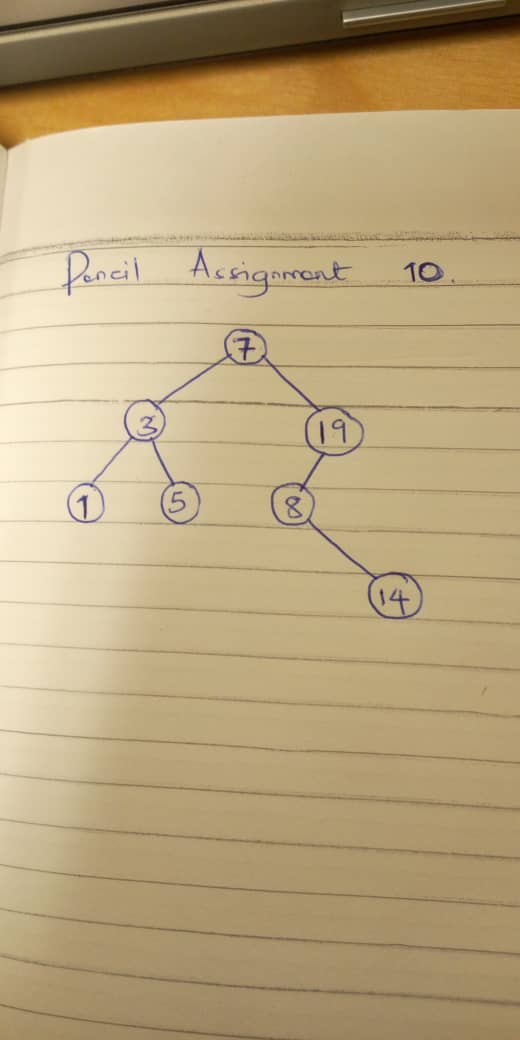 Pencil Assignment 10.
7
3 19
1 5 8
14